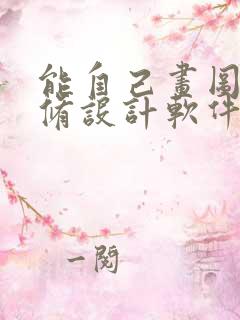 能自己畫圖
脩設計軟件
一閱